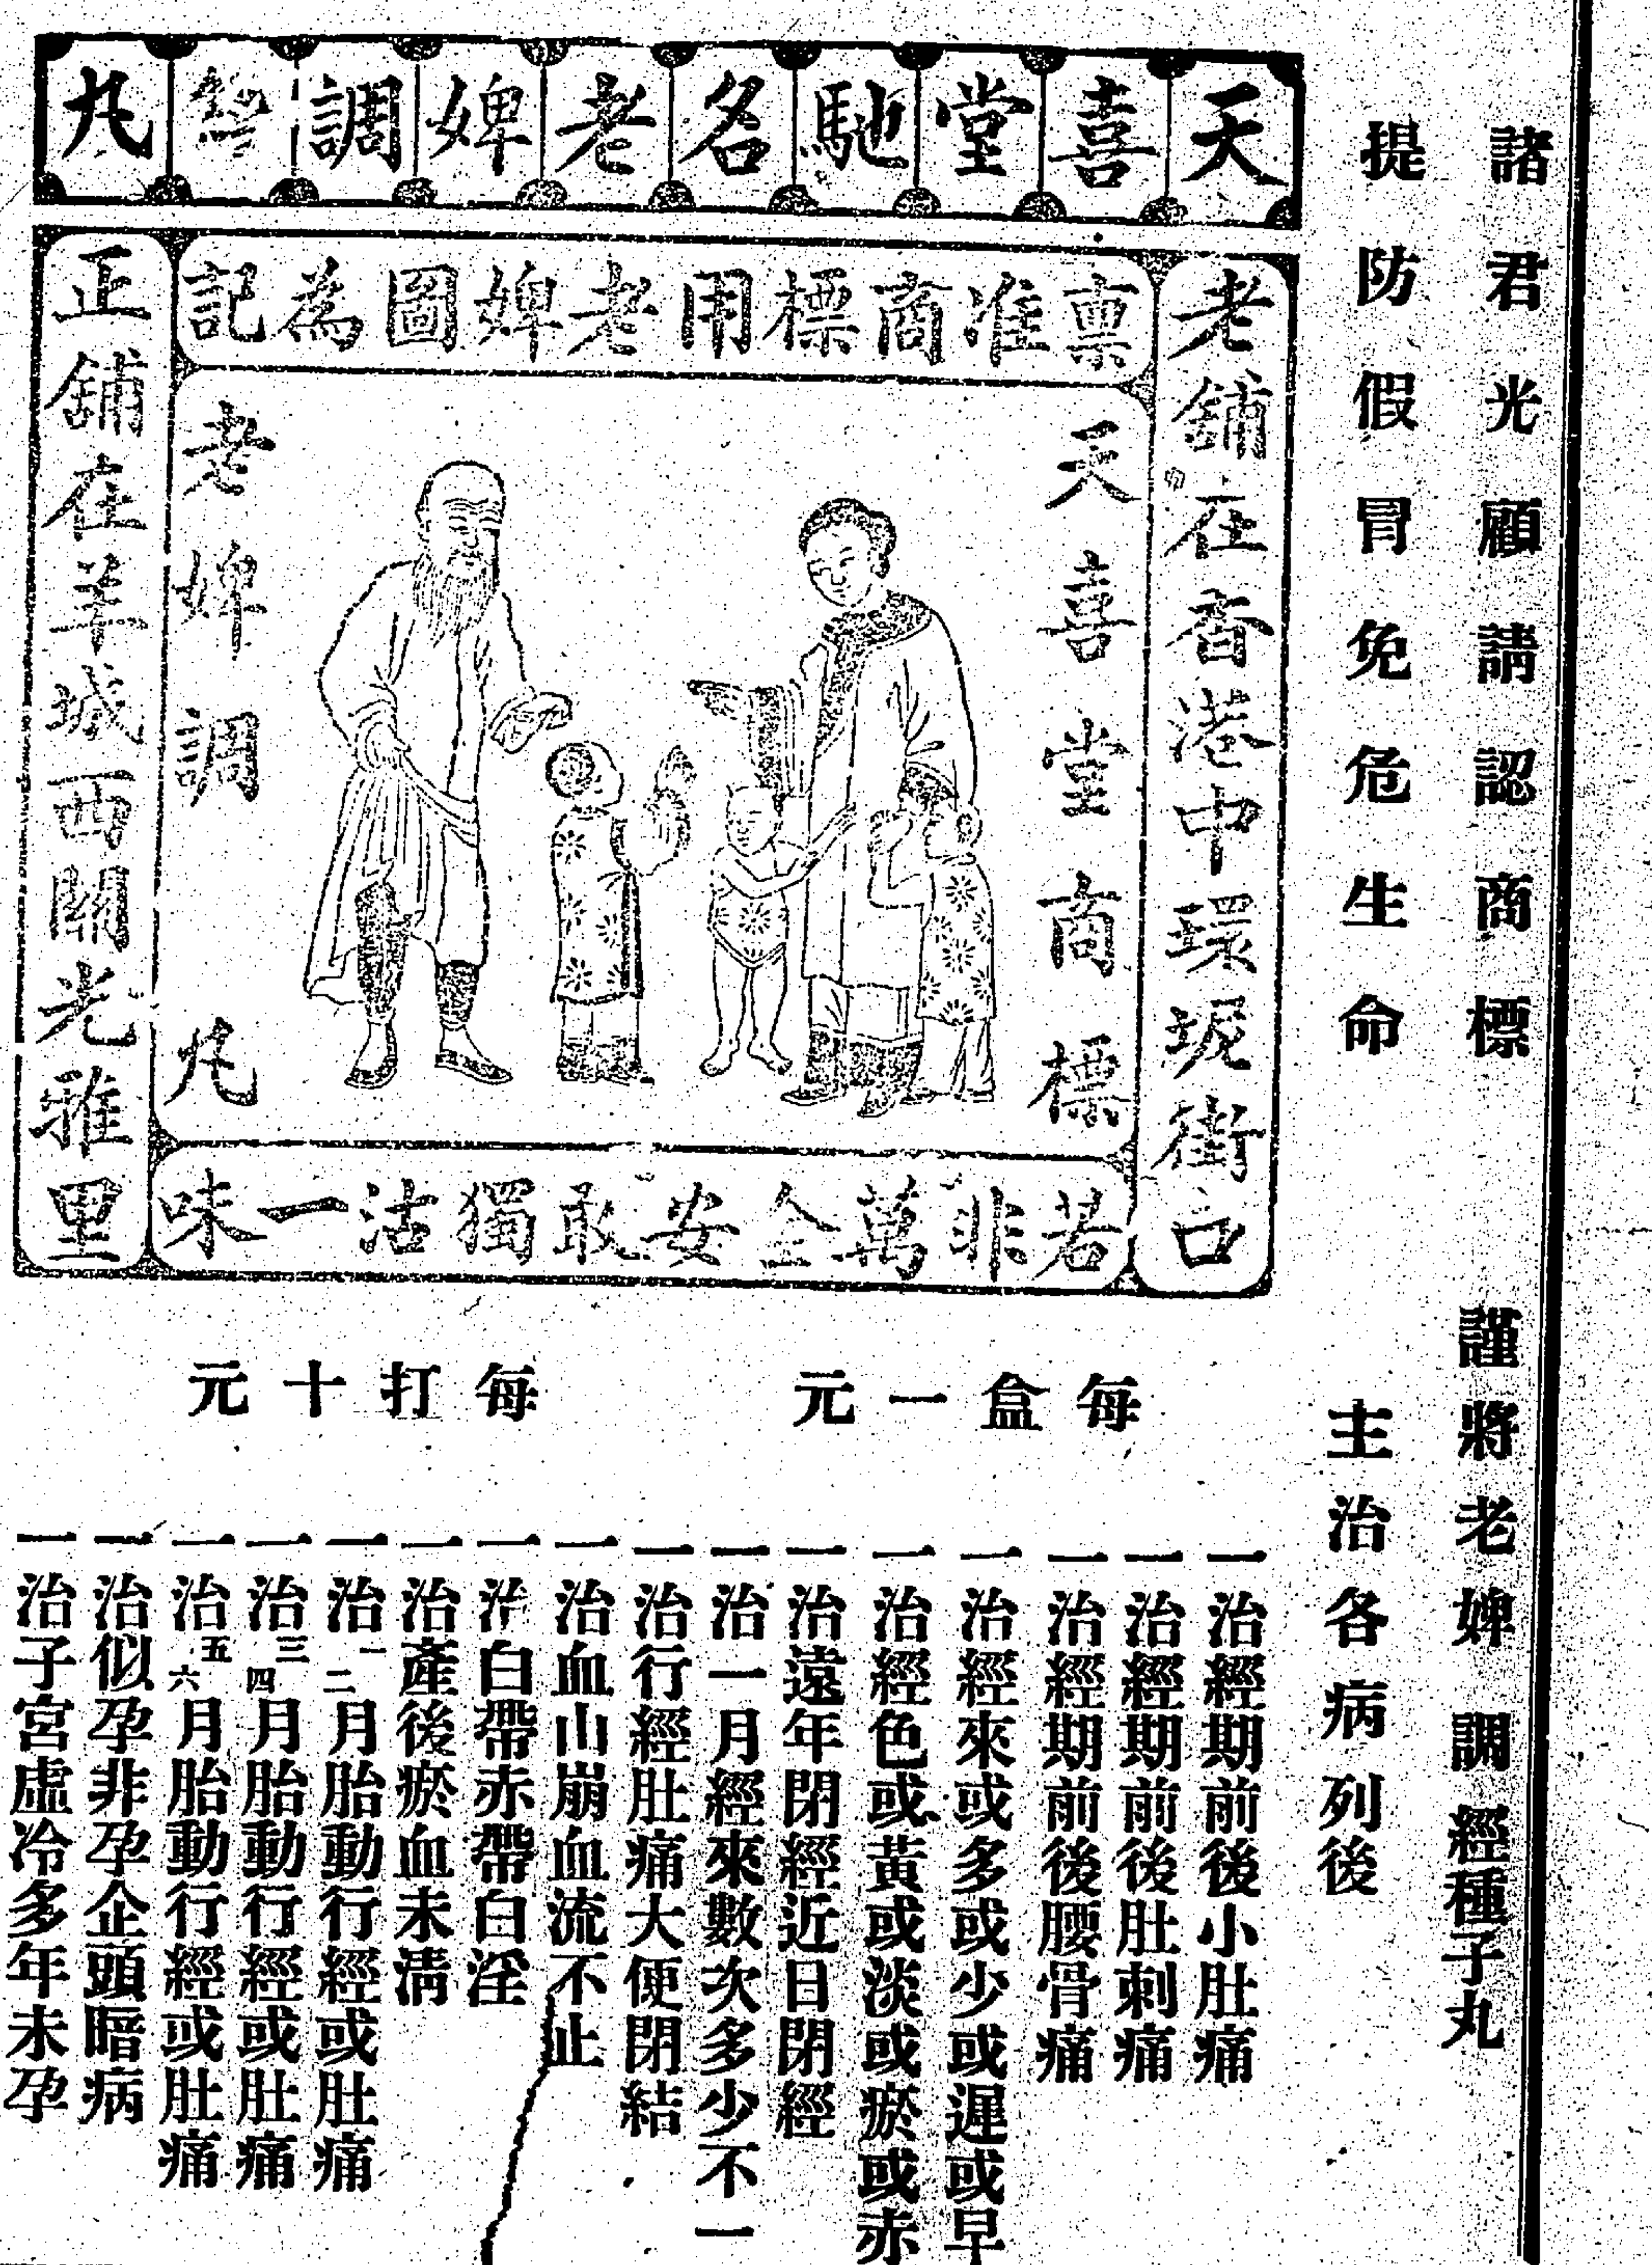 諸君光顧請認商標
提防假冒免危生命
天喜堂馳名老婢調經丸
老舖在香港中環坂街口
稟准商標用老婢圖為記
天喜堂商標
老婢調丸
若非萬全安敢獨沽一味
正舖在羊城西關光雅里
每盒一元
每打十元
謹將老婢調經種子丸
主治各病列後
一治經期前後小肚痛
一治經期前後肚刺痛
一治經期前後腰骨痛
一治經來或多或少或遲或早
一治經色或黃或淡或瘀或赤
一治遠年閉經近日閉經
一治一月經來數次多少不一
一治行經肚痛大便閉結
一治血山崩血流不止
一治白帶赤帶白淫
一治產後瘀血未清
一治一二月胎動行經或肚痛
一治三四月胎動行經或肚痛
一治五六月胎動行經或肚痛
一治似孕非孕企頭暗病
一治子宮虛冷多年未孕